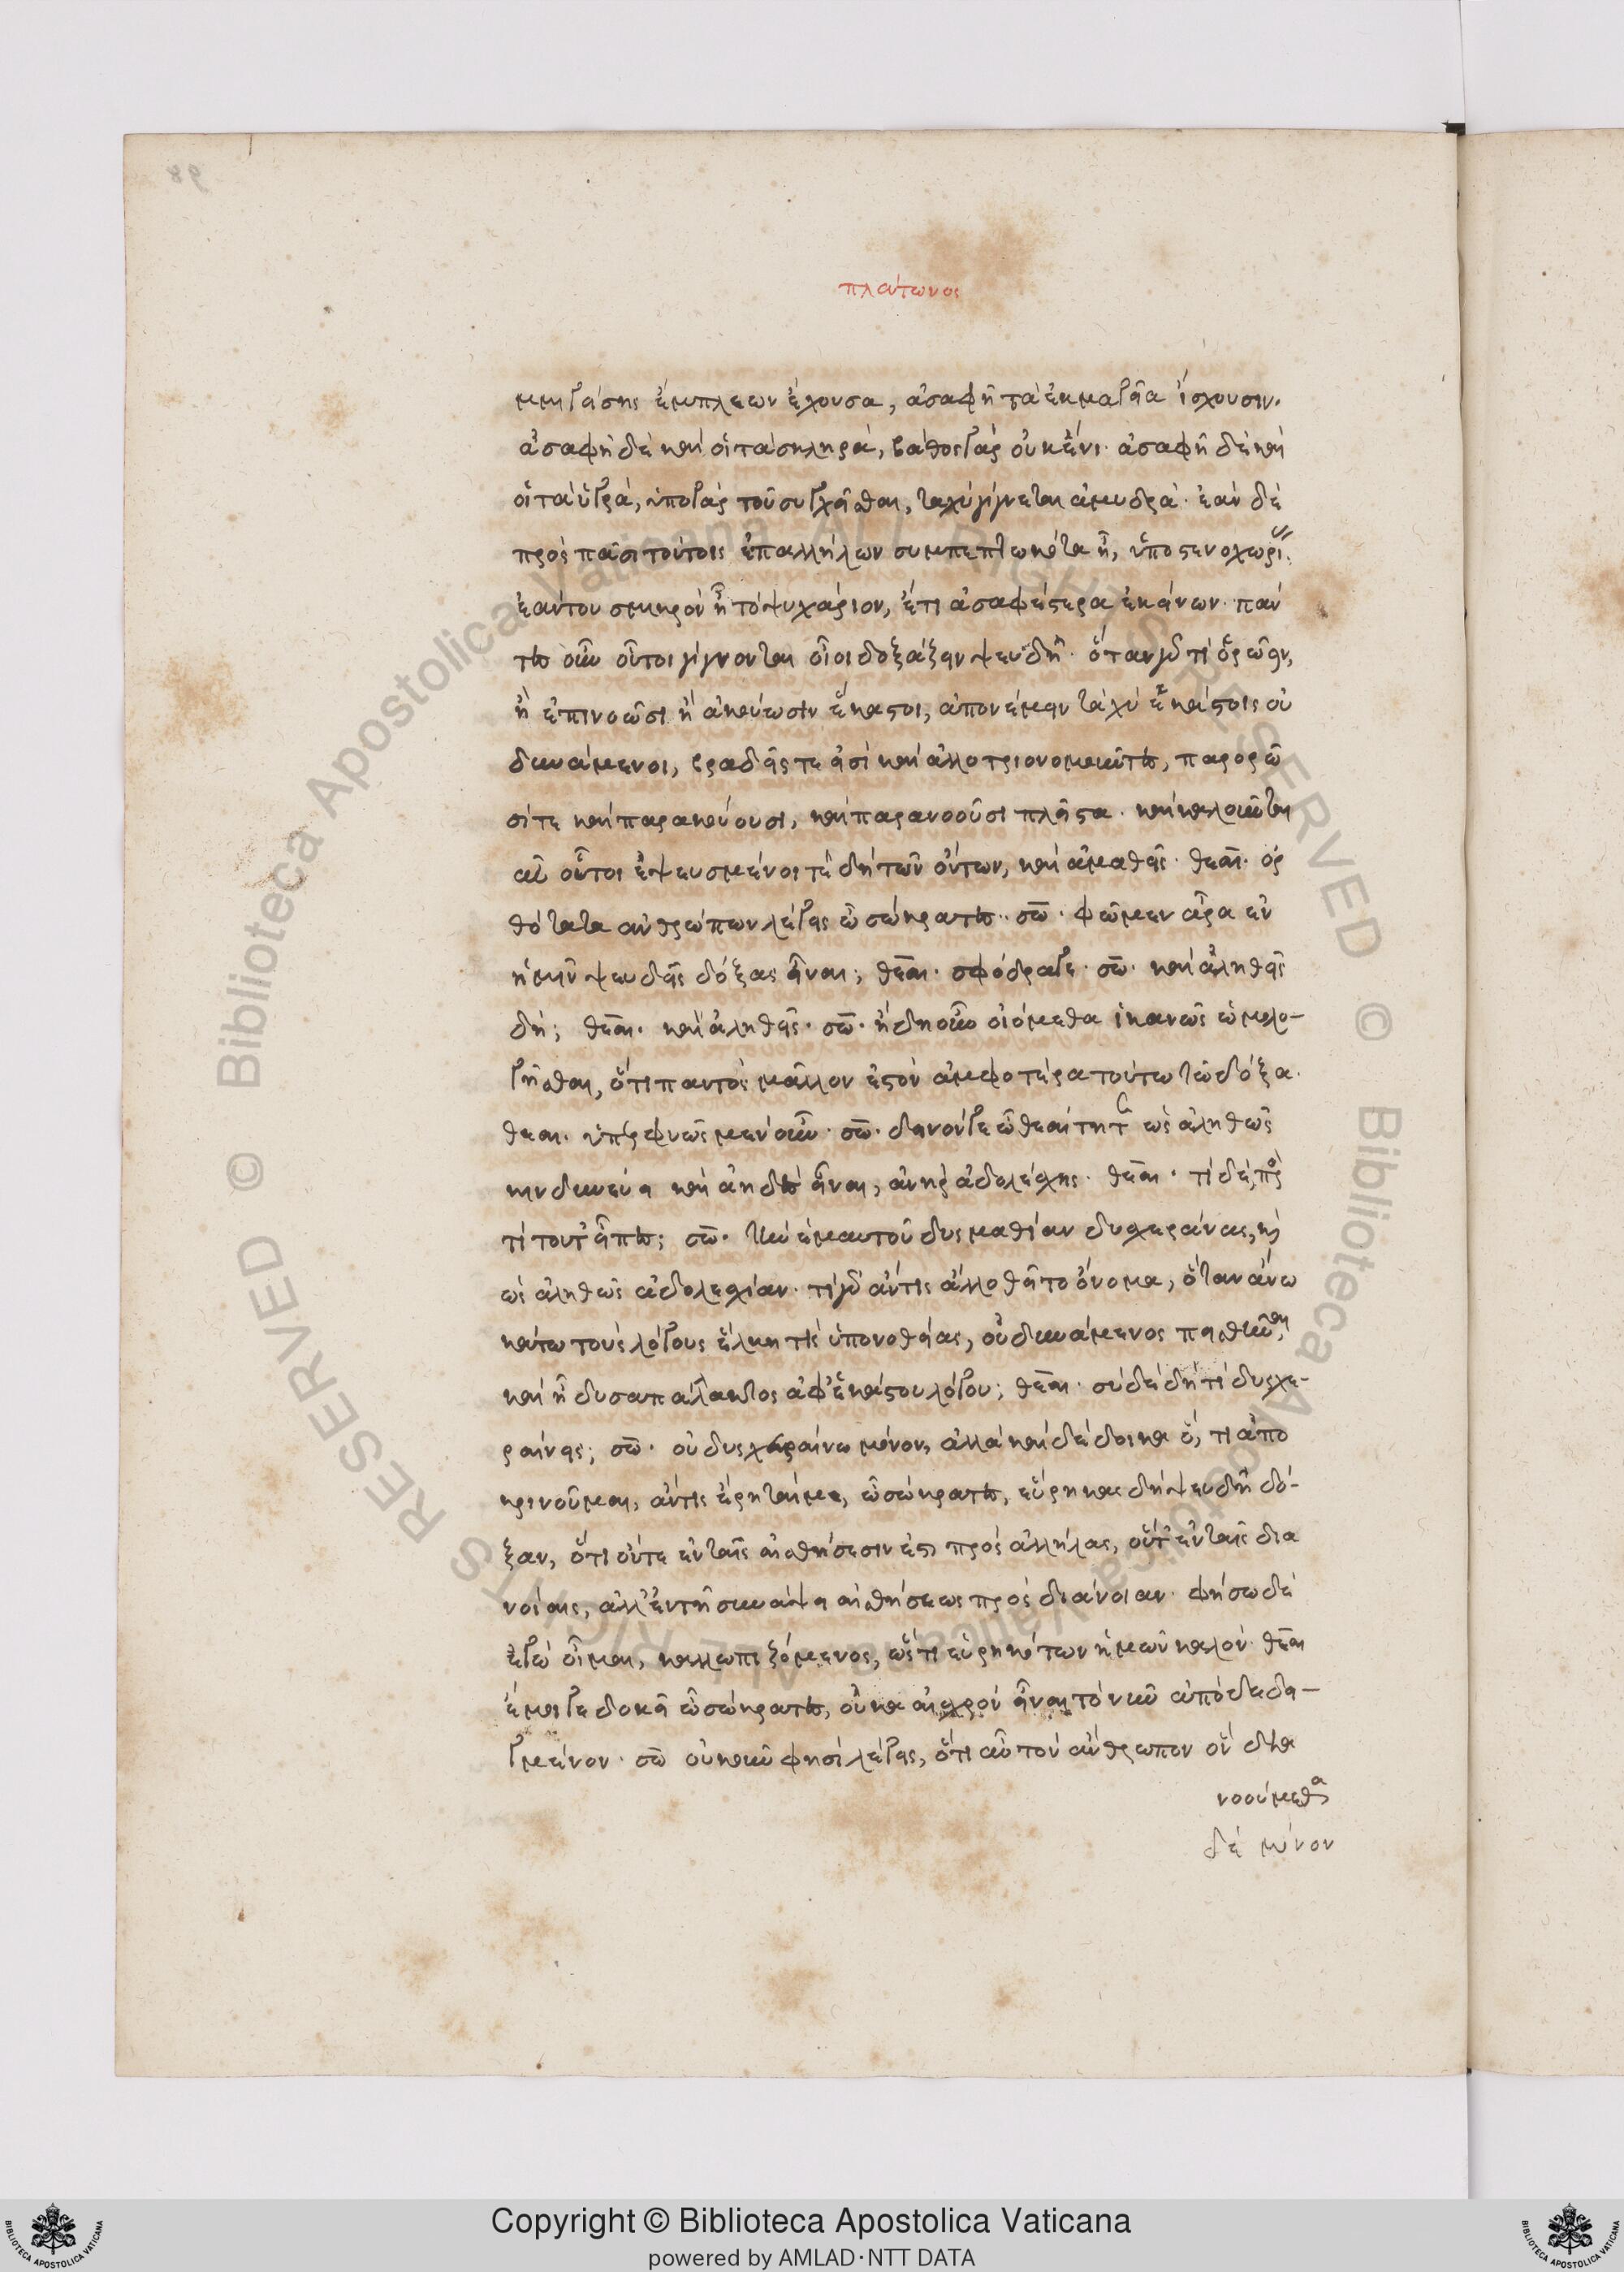 89
πλάτωνος
μμιγείσης ἔμπλεων ἔχουσα, ἀσαφῆ τὰ ἐκμαγεῖα ἴσχουσιν.
ἀσαφῆ δὲ καὶ οἱ τὰ σκληρά, βάθος γὰρ οὐκ ἔνι· ἀσαφῆ δὲ καὶ
οἱ τὰ ὑγρά, ὑπὸ γὰρ τοῦ συγχεῖσθαι, ταχὺ γίγνεται ἀμυδρά· ἐὰν δὲ
πρὸς πᾶσι τούτοις ἐπ' ἀλλήλων συμπεπτωκότα ᾖ, ὑπὸ στενοχωρίας
ἐάν του σμικρὸν ᾖ τὸ ψυχάριον, ἔτι ἀσαφέστερα ἐκείνων· πάν
τες οὖν οὗτοι γίγνονται οἷοι δοξάζειν ψευδῆ· ὅταν γάρ τι ὁρῶσιν,
ἢ ἐπινοῶσι ἢ ἀκούωσιν ἕκαστοι, ἀπονέμειν ταχὺ ἑκάστοις οὐ
δυνάμενοι, βραδεῖς τε εἰσὶ καὶ ἀλλοτριονομοῦντες, παρορῶ
σί τε καὶ παρακούουσι, καὶ παρανοοῦσι πλεῖστα· καὶ καλοῦνται
αὖ οὗτοι ἐψευσμένοι τε δὴ τῶν ὄντων, καὶ ἀμαθεῖς· θεαι· ὀρ
θότατα ἀνθρώπων λέγεις ὦ σώκρατες· σω· φῶμεν ἄρα ἐν
ἡμῖν ψευδεῖς δόξας εἶναι; θεαι· σφόδρα γε· σω· καὶ ἀληθεῖς
δή; θεαι· καὶ ἀληθεῖς· σω· ἤδη οὖν οἰόμεθα ἱκανῶς ὡμολο-
γῆσθαι, ὅτι παντὸς μᾶλλον ἐστὸν ἀμφοτέρα τούτω τὼ δόξα.
θεαι· ὑπερφυῶς μὲν οὖν· σω· δεινόν γε ὦ θεαίτητε ὡς ἀληθῶς
κινδυνεύει καὶ ἀηδὲς εἶναι, ἀνὴρ ἀδολέσχης· θεαι· τί δέ, πρὸς
τί τοῦτ' εἶπες; σω· τὴν ἐμαυτοῦ δυσμαθίαν δυσχεράνας, καὶ
ὡς ἀληθῶς ἀδολεσχίαν· τί γὰρ ἄν τις ἄλλο θεῖτο ὄνομα, ὅταν ἄνω
κάτω τοὺς λόγους ἕλκῃ τις ὑπὸ νωθείας, οὐ δυνάμενος πεισθῆναι,
καὶ ᾖ δυσαπάλλακτος ἀφ' ἑκάστου λόγου; θεαι· σὺ δὲ δὴ τί δυσχε-
ραίνεις; σω· οὐ δυσχεραίνω μόνον, ἀλλὰ καὶ δέδοικα ὅ, τι ἀπο
κρινοῦμαι, ἄν τις ἔρηταί με, ὦ σώκρατες, εὕρηκας δὴ ψευδῆ δό-
ξαν, ὅτι οὔτε ἐν ταῖς αἰσθήσεσιν ἐστι πρὸς ἀλλήλας, οὔτ' ἐν ταῖς δια
νοίαις, ἀλλ' ἐν τῇ συνάψει αἰσθήσεως πρὸς διάνοιαν· φήσω δὲ
ἐγὼ οἶμαι, καλλωπιζόμενος, ὥς τι εὑρηκότων ἡμῶν καλόν· θεαι
ἔμοιγε δοκεῖ ὦ σώκρατες, οὐκ αἰσχρὸν εἶναι τὸ νῦν ἀποδεδει-
γμένον· σω οὐκοῦν φησὶ λέγεις, ὅτι αὖ τὸν ἄνθρωπον ὃν δια
νοούμεθα
δὲ μόνον
Copyright © Biblioteca Apostolica Vaticana
powered by AMLAD·NTT DATA